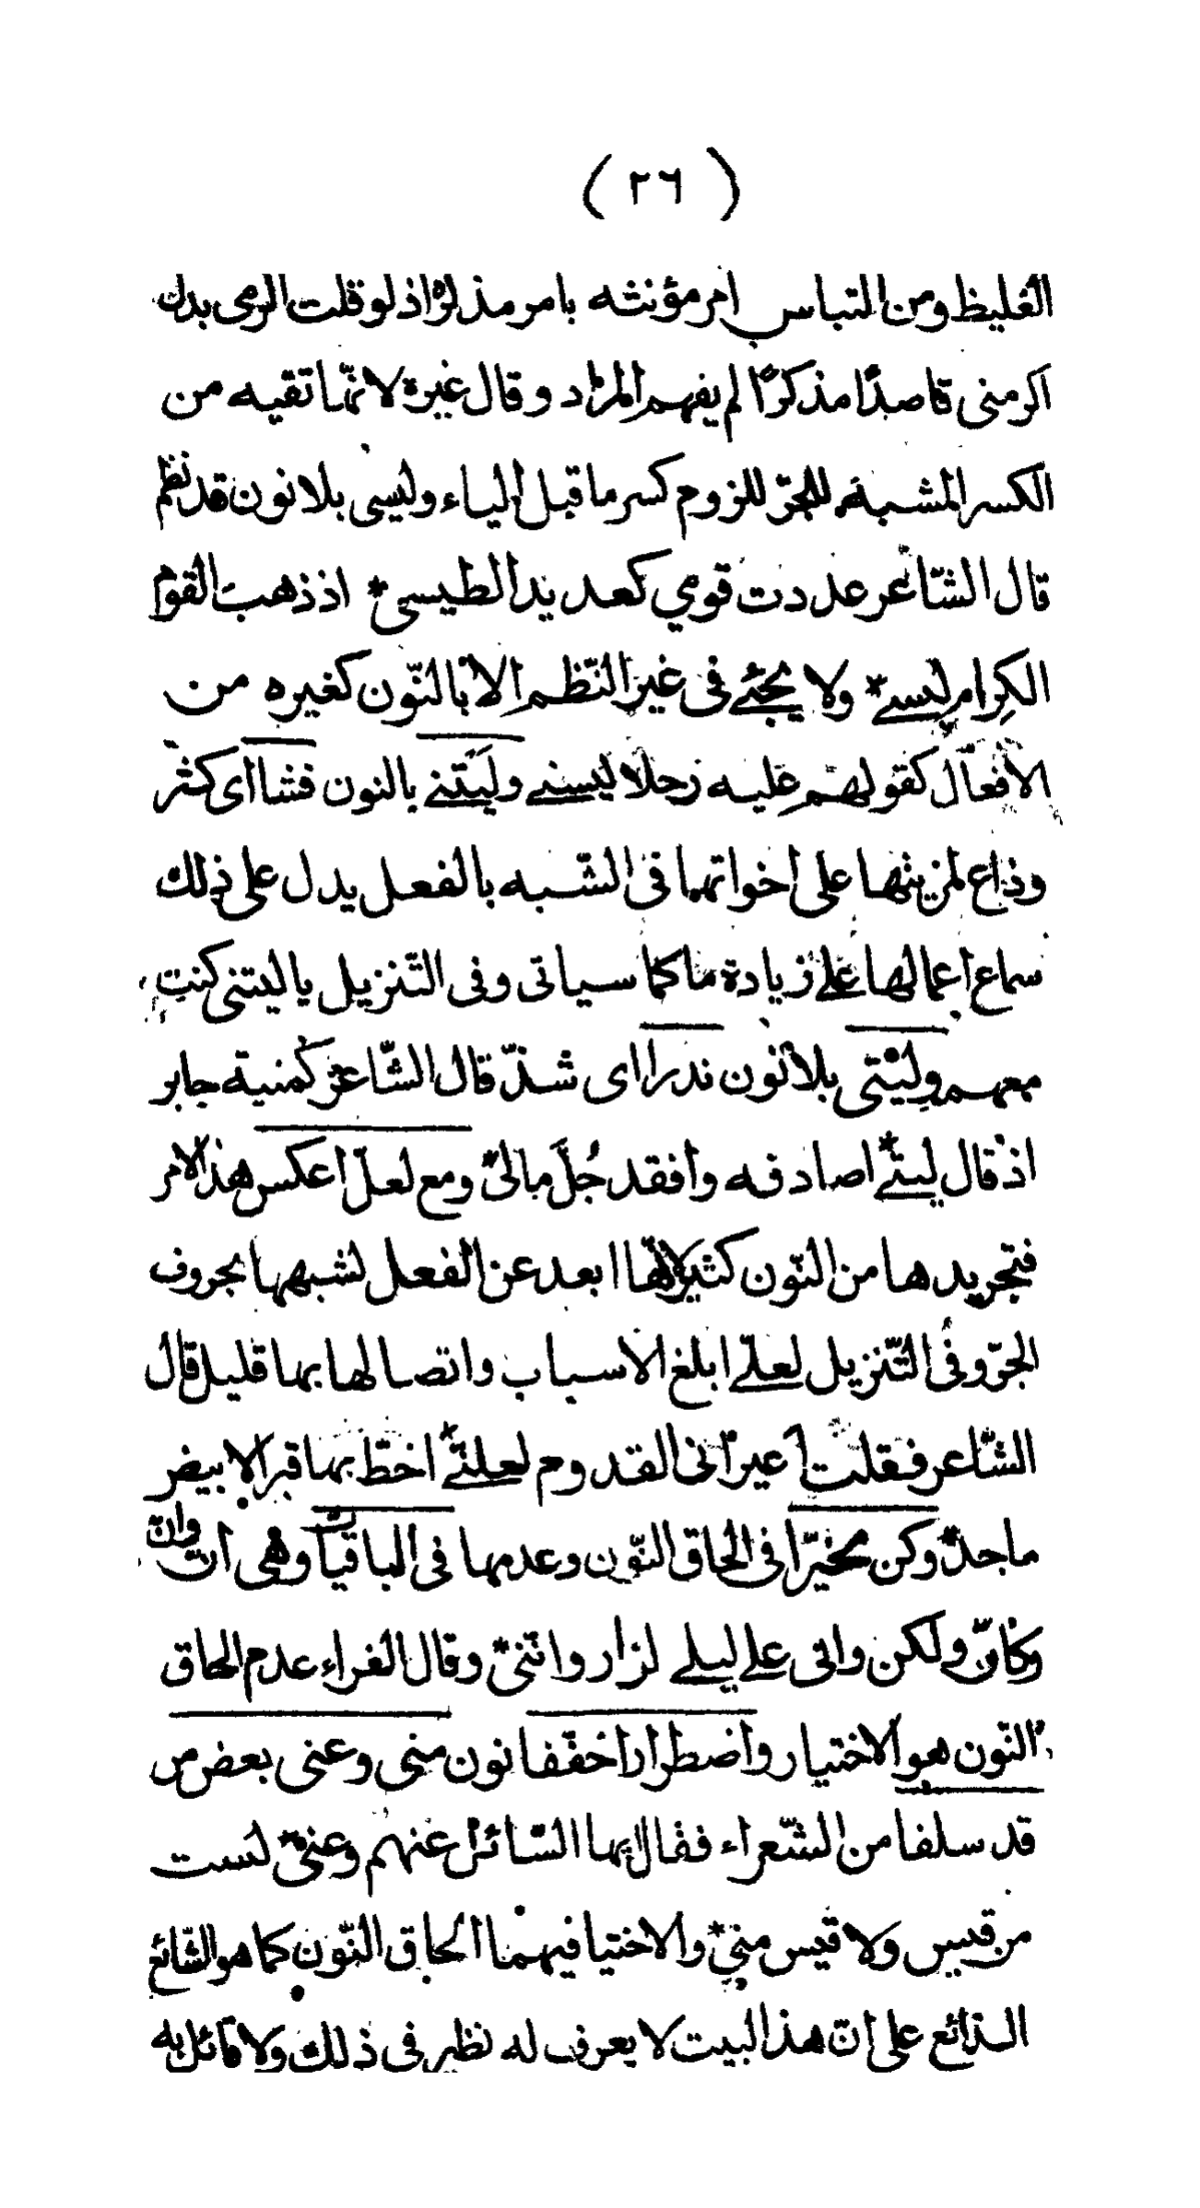 ( ٢٦ )
الغليظ ومن التباس امر مؤنثه بامر مذكره اذ لو قلت اكرمى بدل
اكرمنى قاصدًا مذكرًا لم يفهم المراد وقال غيره لانّها تقيه من
الكسر المشبه للجرّ للزوم كسر ما قبل الياء وليسى بلا نون قد نظم
قال الشّاعر عددت قومي كعديد الطيسى * اذ ذهب القوم
الكرام ليسى * ولا يجئ فى غير النّظم الا بالنّون كغيره من
الافعال كقولهم عليه رجلا ليسنى وليتنى بالنون فشا اى كثر
وذاع لمزيتها على اخواتها فى الشّبه بالفعل يدل على ذلك
سماع اعمالها على زيادة ما كما سياتى وفى التّنزيل يا ليتنى كنت
معهم وليتى بلا نون ندرا اى شذّ قال الشّاعر كمنية جابر
اذ قال ليتى * اصادفه وافقد جُلَّ مالى * ومع لعلّ اعكس هذا الامر
فتجريدها من النّون كثير لانّها ابعد عن الفعل لشبهها بحروف
الجرّ وفى التّنزيل لعلّى ابلغ الاسباب واتصالها بها قليل قال
الشّاعر فقلت اعيرانى القدوم لعلنى * اخطّ بها قبرا لابيض
ماجد * وكن مخيّرا فى الحاق النّون وعدمها فى الباقيات وهى انّ وانّ
وكانّ ولكن وانى على ليلى لزار واننى * وقال الفراء عدم الحاق
النّون هو الاختيار واضطرارا خفّفا نون منى وعنى بعض من
قد سلفا من الشّعراء فقال ايها السّائل عنهم وعنى * لست
من قيس ولا قيس منى * والاختيا فيهما الحاق النّون كما هو الشّائع
الذائع على انّ هذا البيت لا يعرف له نظير فى ذلك ولا قائل به